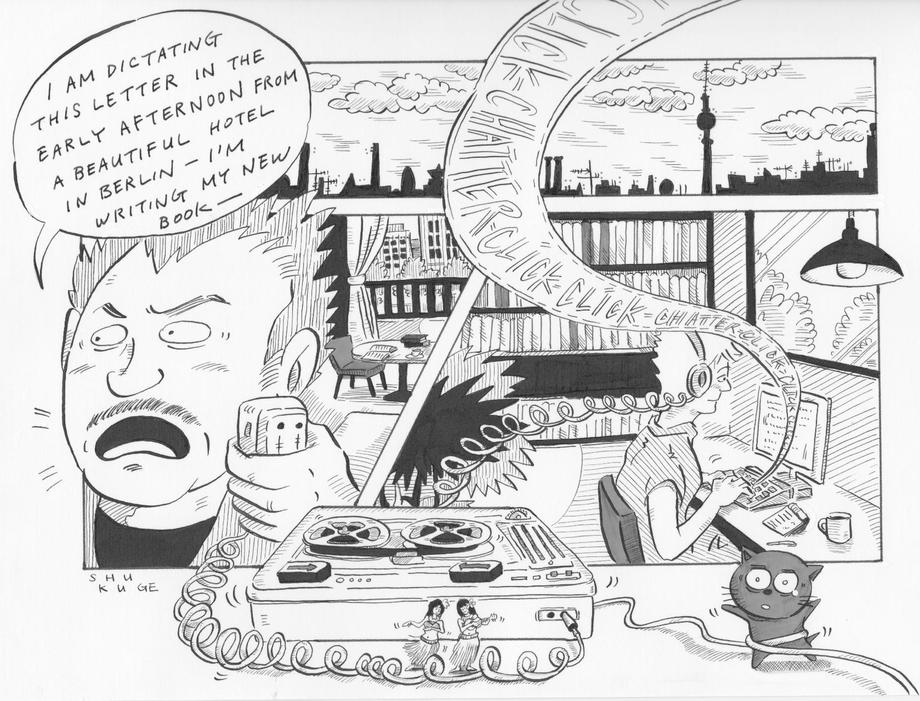 I AM DICTATING
THIS LETTER IN THE
EARLY AFTERNOON FROM
A BEAUTIFUL HOTEL
IN BERLIN – I'M
WRITING MY NEW
BOOK —
CLICK-CLICK-CHATTER-CLICK-CLICK-CHATTER-CLICK-CLICK-
SHU
KUGE